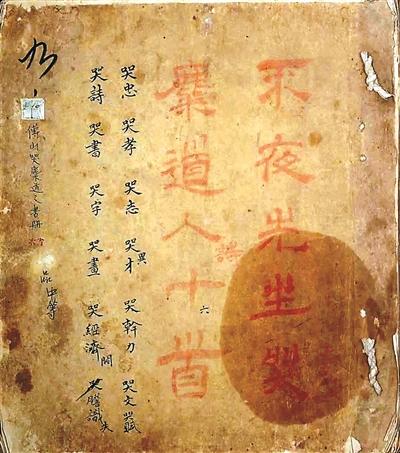 不夜光坐哭
麋道人十首
六
哭忠 哭孝 哭志 哭才 哭幹力 哭文 哭賦
哭詩 哭書 哭字 哭畫 哭經濟 哭膽識
傅山哭麋道人書冊
品中等